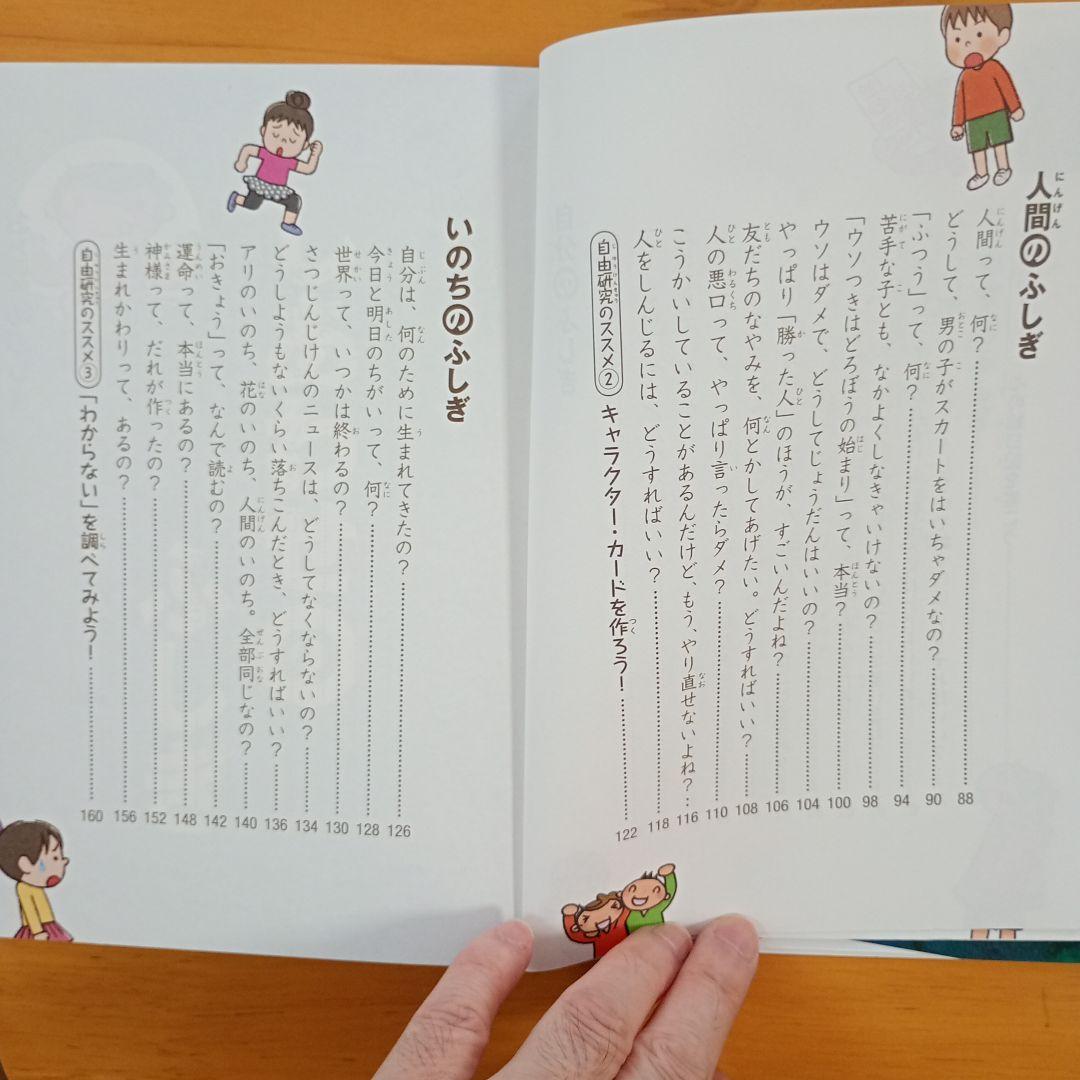 人間のふしぎ
人間って、何? 88
どうして、男の子がスカートをはいちゃダメなの? 90
「ふつう」って、何? 94
苦手な子とも、なかよくしなきゃいけないの? 98
「ウソつきはどろぼうの始まり」って、本当? 100
ウソはダメで、どうしてじょうだんはいいの? 104
やっぱり「勝った人」のほうが、すごいんだよね? 106
友だちのなやみを、何とかしてあげたい。どうすればいい? 108
人の悪口って、やっぱり言ったらダメ? 110
こうかいしていることがあるんだけど、もう、やり直せないよね? 116
人をしんじるには、どうすればいい? 118
自由研究のススメ② キャラクター・カードを作ろう! 122
いのちのふしぎ
自分は、何のために生まれてきたの? 126
今日と明日のちがいって、何? 128
世界って、いつかは終わるの? 130
さつじんじけんのニュースは、どうしてなくならないの? 134
どうしようもないくらい落ちこんだとき、どうすればいい? 136
アリのいのち、花のいのち、人間のいのち。全部同じなの? 140
「おきょう」って、なんで読むの? 142
運命って、本当にあるの? 148
神様って、だれが作ったの? 152
生まれかわりって、あるの? 156
自由研究のススメ③ 「わからない」を調べてみよう! 160